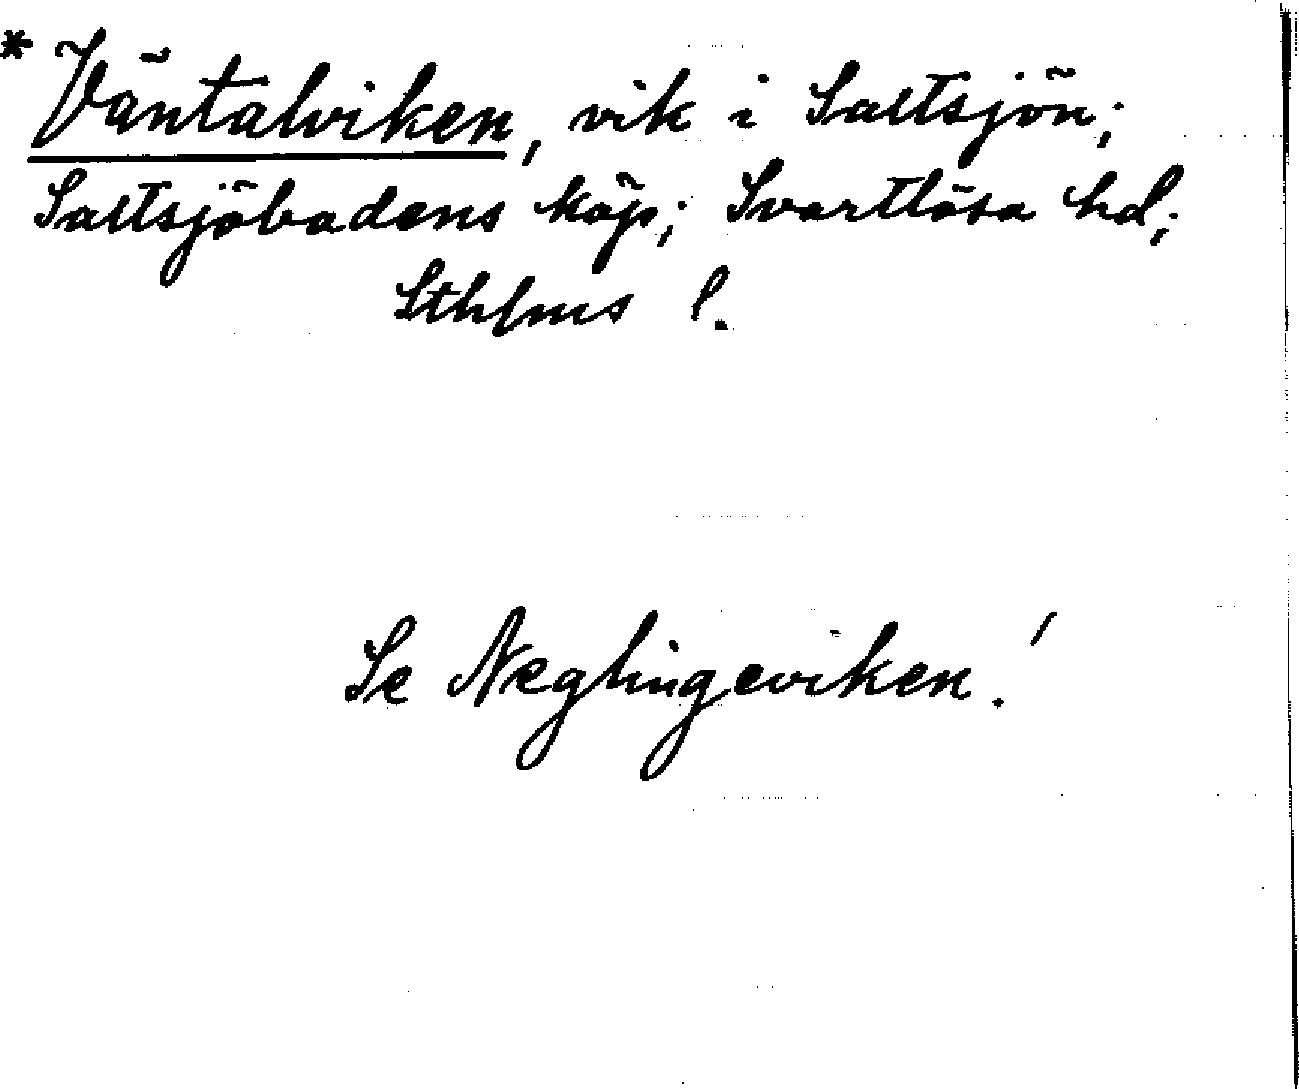 * Väntalviken, vik i Saltsjön;
Saltsjöbadens köp; Svartlösa hd;
Sthlms l.
Se Neglingeviken!